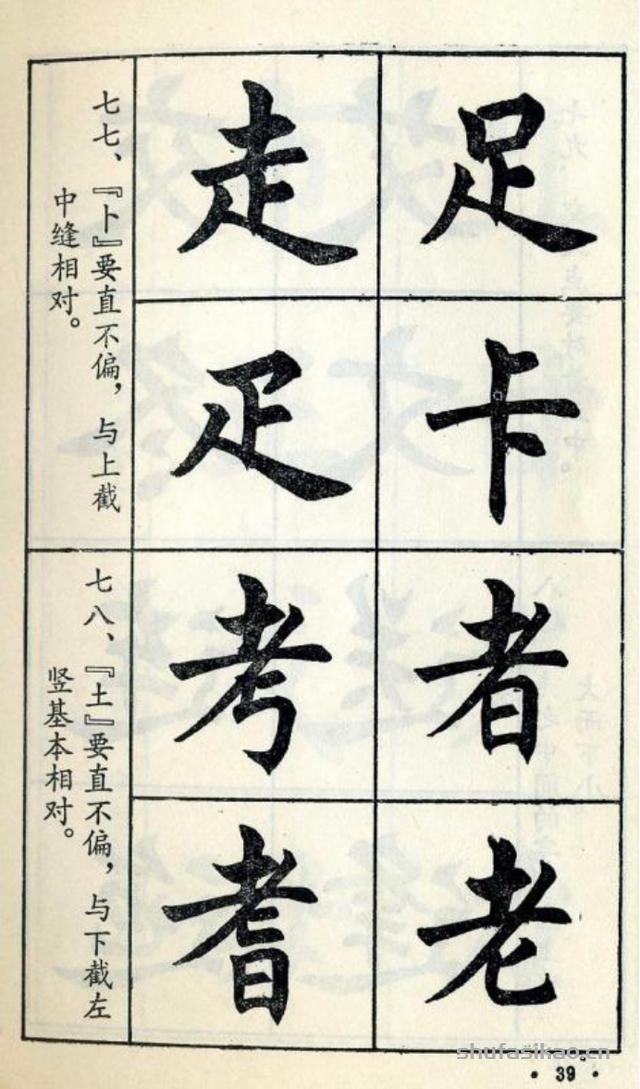 足
卡
走
疋
七七、『卜』要直不偏，与上截
中缝相对。
者
老
考
耆
七八、『土』要直不偏，与下截左
竖基本相对。
shufasikao.cn
·39·